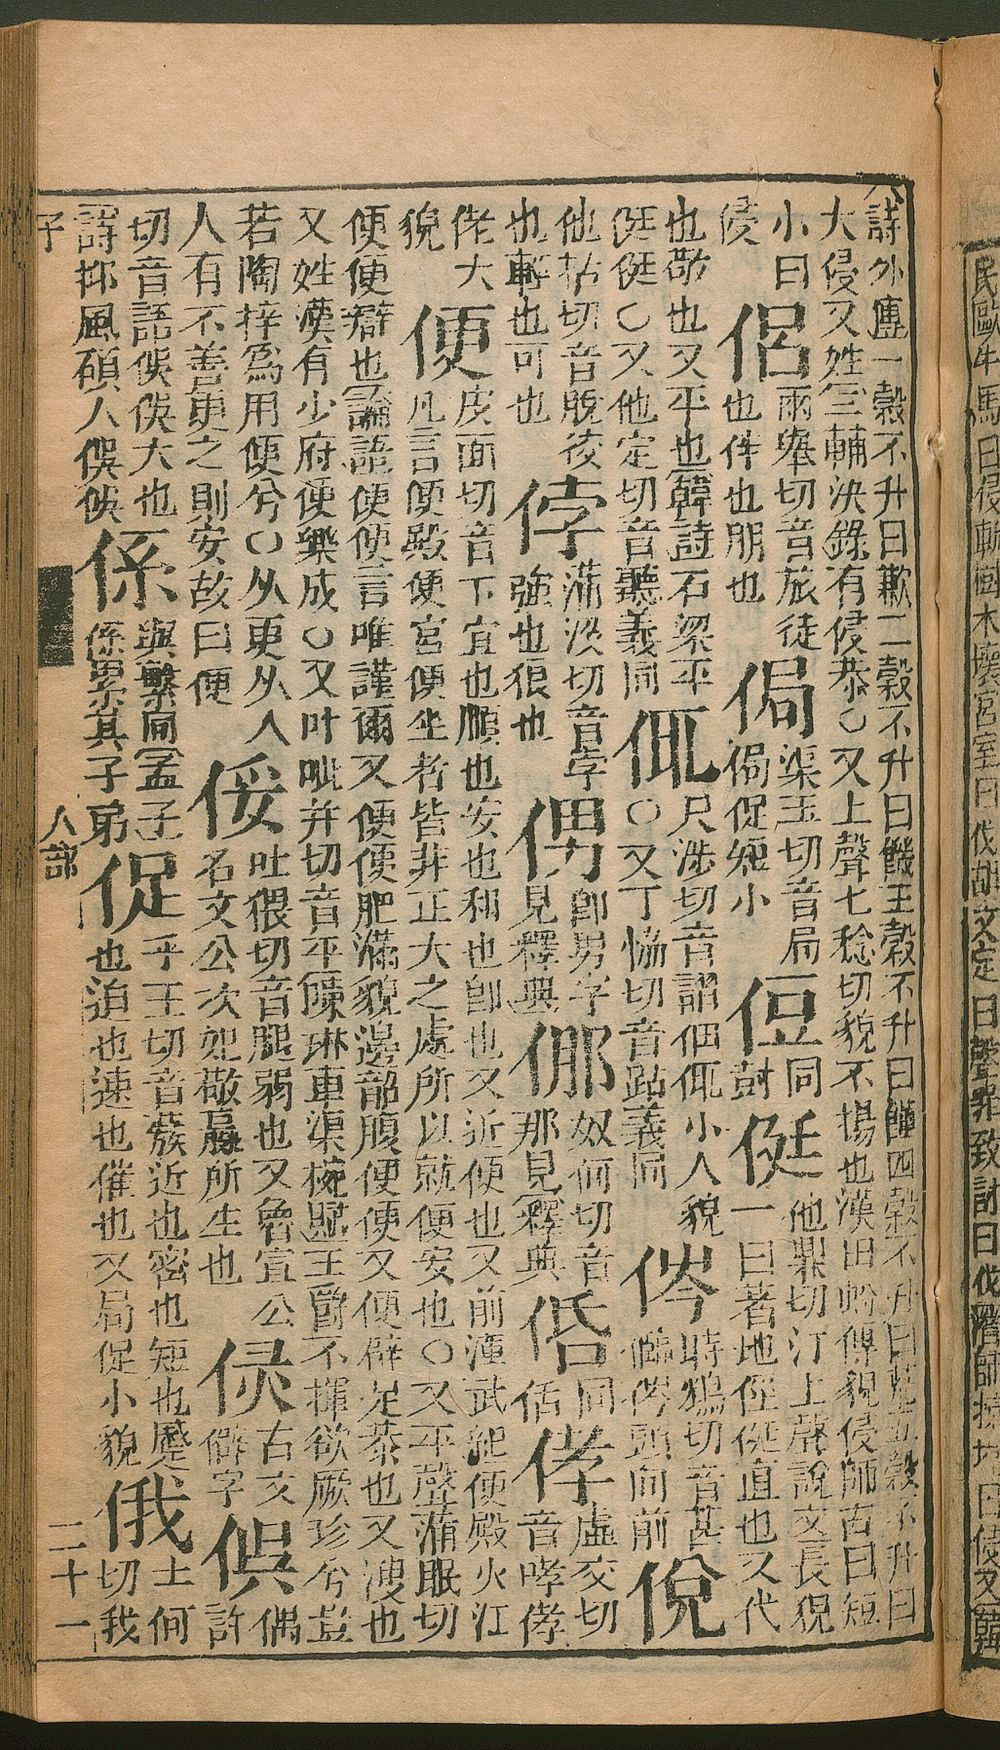 民毆牛馬曰侵斬樹木壞宮室曰伐胡文定曰聲罪致討曰伐潛師掠境曰侵又韓
詩外傳一穀不升曰歉二穀不升曰饑三穀不升曰饉四穀不升曰荒五穀不升曰
大侵又姓三輔決錄有侵恭○又上聲七稔切貌不揚也漢田蚡傳貌侵師古曰短
小曰侵 侶 兩舉切音旅徒也伴也朋也 侷 渠玉切音局侷促短小 侸 同尌 侹 他鼎切汀上聲說文長貌一曰著地侹侹直也又代
也敬也又平也韓詩石梁平侹侹○又他定切音聽義同 㑙 尺涉切音詔㑙小人貌○又丁恊切音跕義同 侺 時鴆切音甚頭向前 侻
他括切音脫狡也輕也可也 侼 蒲沒切音孛強也很也 侽 卽男字見釋典 㑚 奴何切音那見釋典 同佸 侾 虛交切音哮侾
侾大貌 便 皮面切音卞宜也順也安也利也卽也又近便也又前漢武紀便殿火注凡言便殿便宮便坐者皆非正大之處所以就便安也○又平聲蒲眠切
便便辯也論語便便言唯謹爾又便便肥滿貌邊韶腹便便又便辟足恭也又溲也
又姓漢有少府便樂成○又叶毗并切音平陳琳車渠椀賦王爵不揮欲厥珍兮豈
若陶梓爲用便兮○从更从人人有不善更之則安故曰便 俀 吐猥切音腿弱也又魯宣公名文公次妃敬嬴所生也 古文僻字 俁 偶許
切音語俁俁大也詩邶風碩人俁俁 係 與繫同孟子係累其子弟 促 千玉切音蔟近也密也短也蹙也迫也速也催也又局促小貌 俄 土何切我
人部
二十一